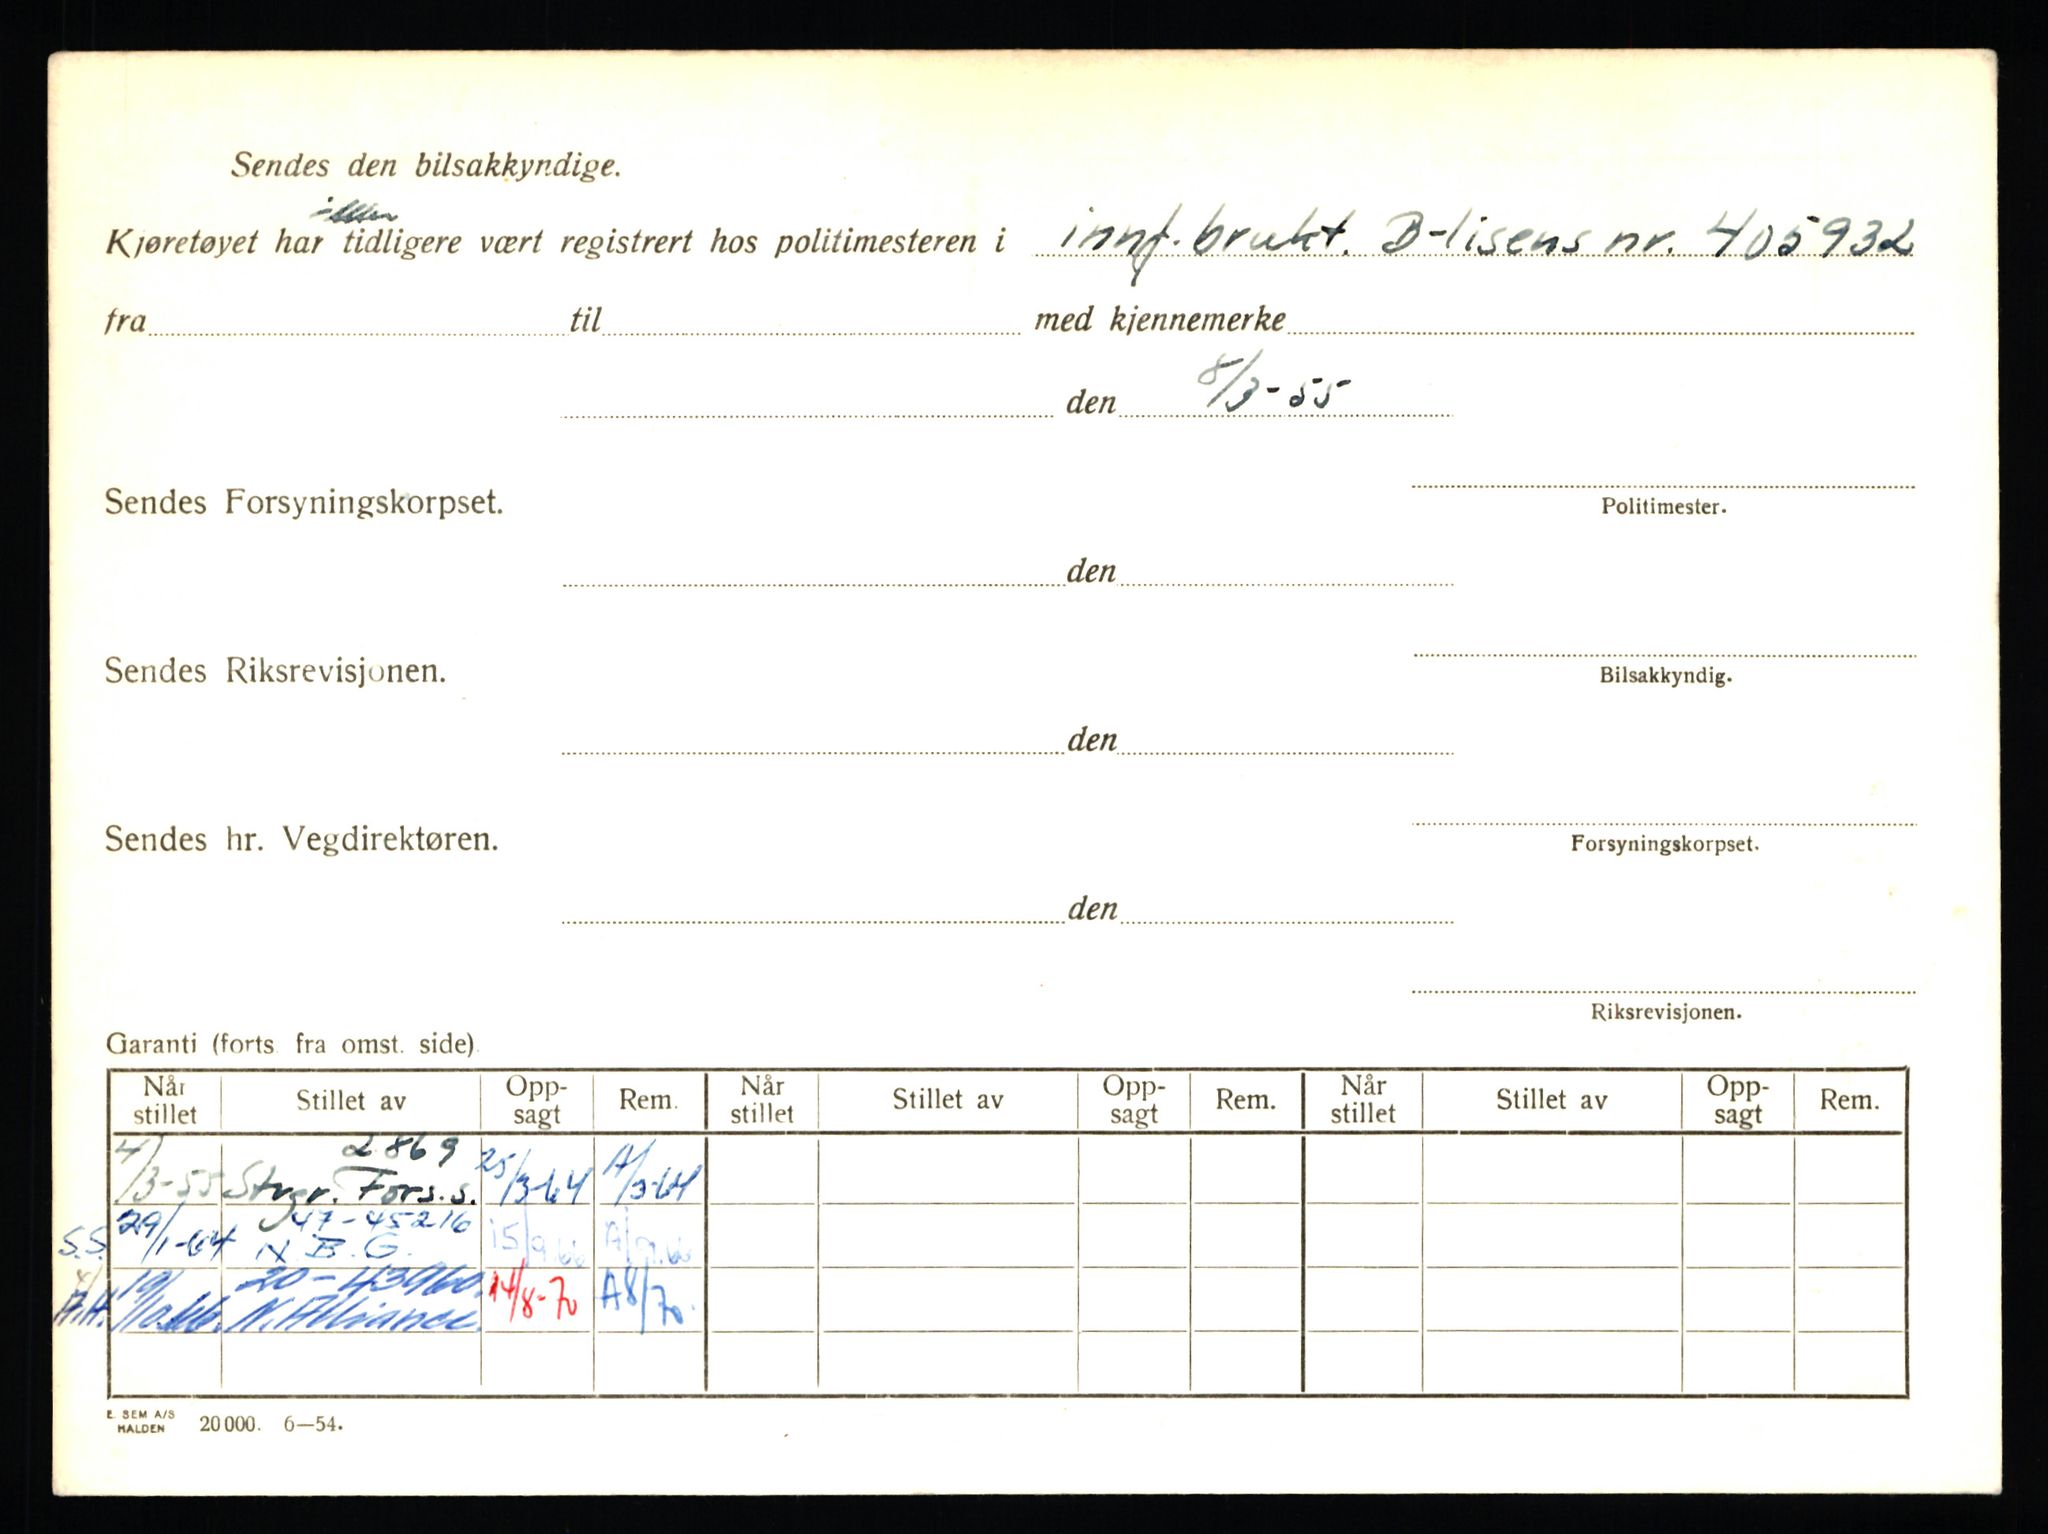 Sendes den bilsakkyndige.
ikke
Kjøretøyet har tidligere vært registrert hos politimesteren i innf. brukt. B-lisens nr. 405932
fra til med kjennemerke
den 8/3-55
Sendes Forsyningskorpset.
Politimester.
den
Sendes Riksrevisjonen.
Bilsakkyndig.
den
Sendes hr. Vegdirektøren.
Forsyningskorpset.
den
Riksrevisjonen.
Garanti (forts. fra omst. side).
Når stillet Stillet av Opp-sagt Rem. Når stillet Stillet av Opp-sagt Rem. Når stillet Stillet av Opp-sagt Rem.
4/3-55 2869 Stvgr. Fors.s. 25/3-64 A/3-64
S.S. 29/1-64 47-45216 N.B.G. 15/9.66 A/9.66
A.H. 19/10.66. 20-43960. N. Alliance. 14/8-70 A8/70.
E. SEM A/S
HALDEN 20 000. 6—54.